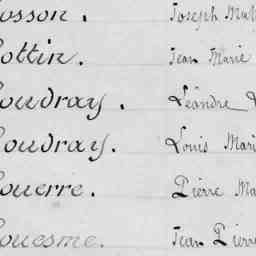 osson. Joseph Ma
ottin. Jean Marie
oudray. Léandre
oudray. Louis Mari
ouerre. Pierre Ma
ouesme. Jean Pierre